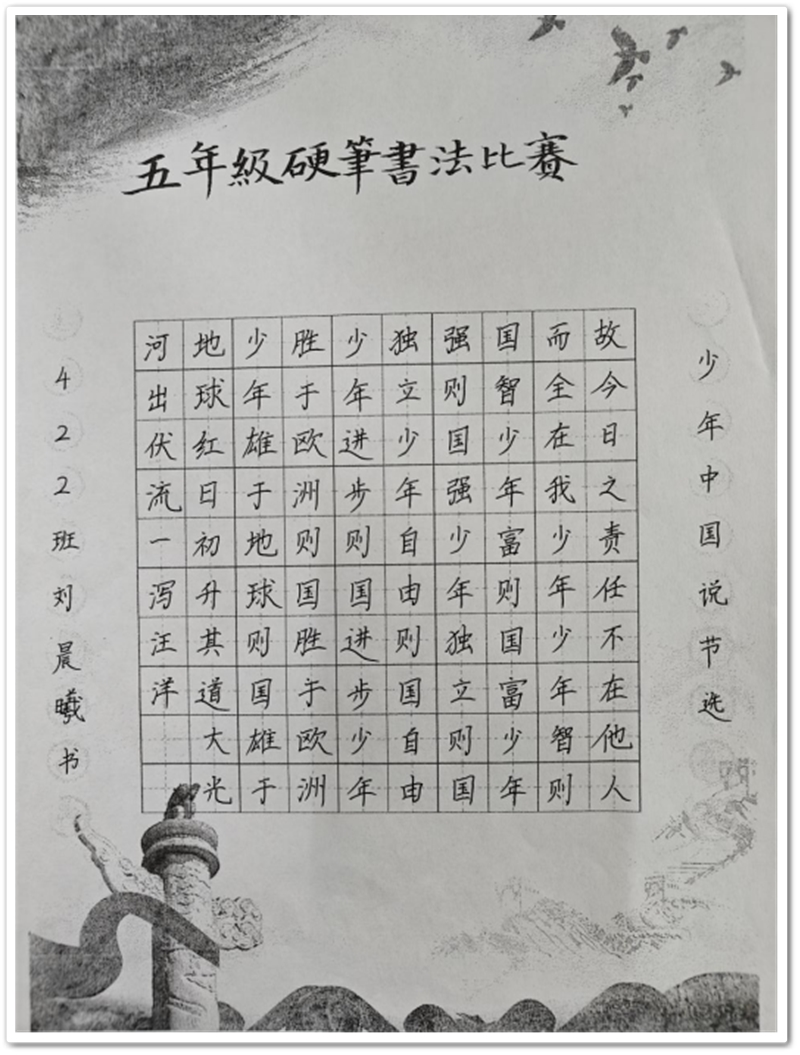 五年級硬筆書法比賽
少年中国说节选
故今日之责任不在他人
而全在我少年少年智则
国智少年富则国富少年
强则国强少年独立则国
独立少年自由则国自由
少年进步则国进步少年
胜于欧洲则国胜于欧洲
少年雄于地球则国雄于
地球红日初升其道大光
河出伏流一泻汪洋
422班刘晨曦书